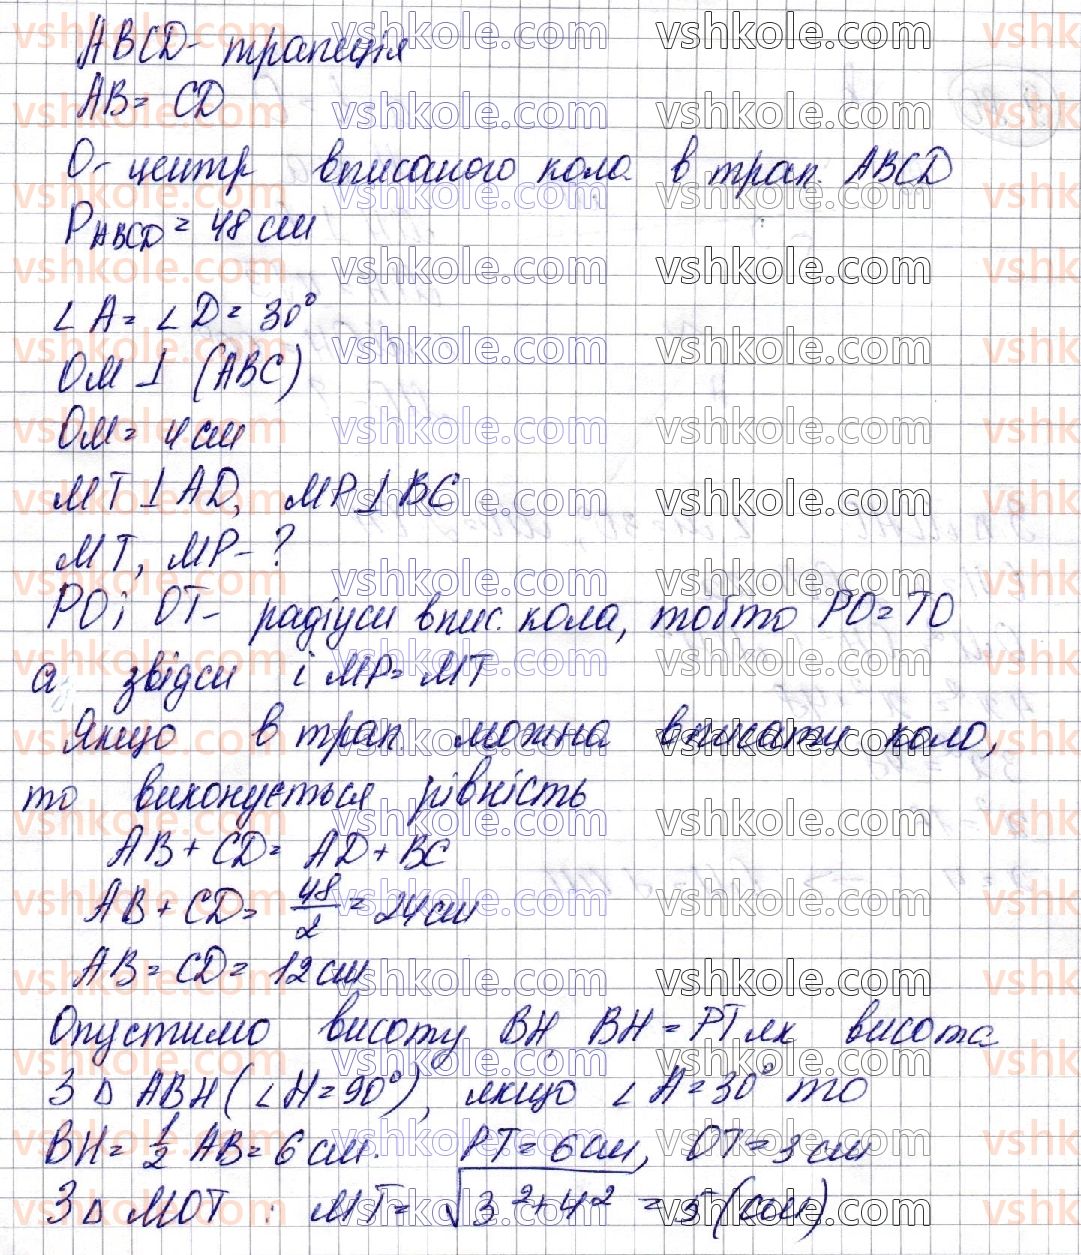 ABCD - трапеція
AB = CD
O - центр вписаного кола в трап. ABCD
P ABCD = 48 см
∠A = ∠D = 30°
OM ⊥ (ABC)
OM = 4 см
MT ⊥ AD, MP ⊥ BC
MT, MP - ?
PO і OT - радіуси впис. кола, тобто PO = TO
а звідси і MP = MT
Якщо в трап. можна вписати коло,
то виконується рівність
AB + CD = AD + BC
AB + CD = 48/2 = 24 см
AB = CD = 12 см
Опустимо висоту BH, BH = PT як висота
З Δ ABH (∠H = 90°), якщо ∠A = 30° то
BH = 1/2 AB = 6 см. PT = 6 см, OT = 3 см
З Δ MOT : MT = √3²+4² = 5 (см)
vshkole.com